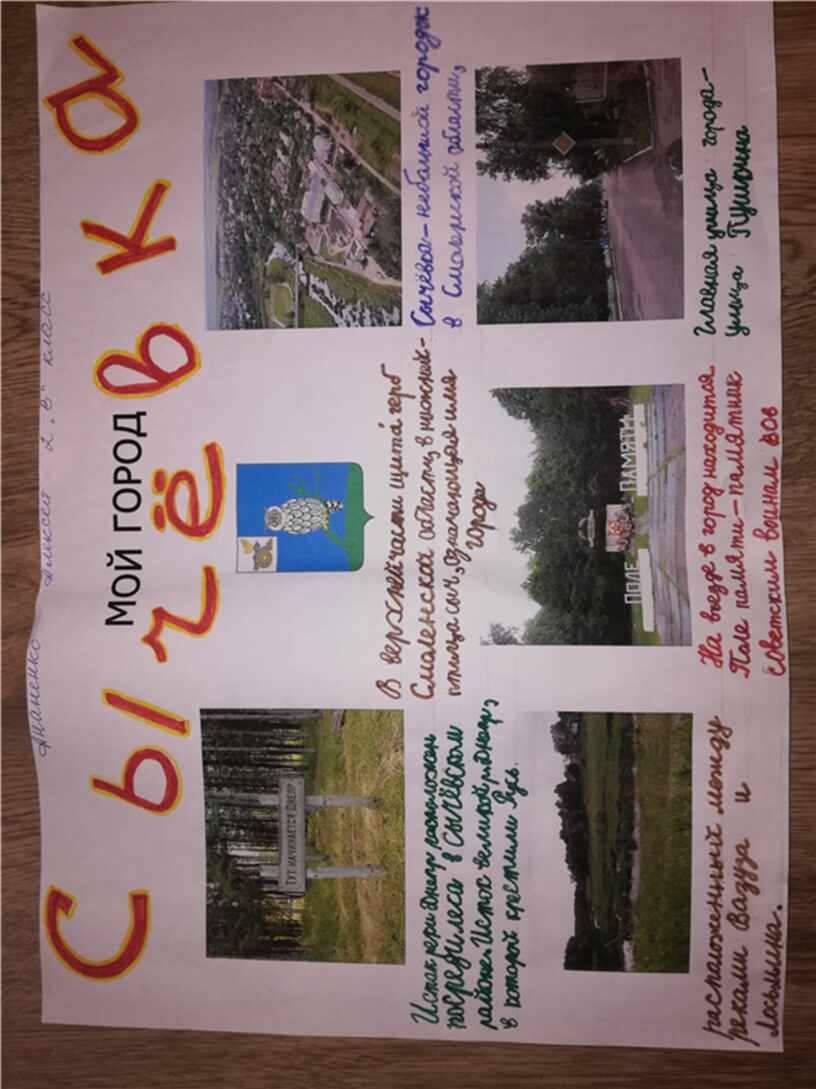 Ананенко Алексей 2 „В" класс
МОЙ ГОРОД
Сычёвка
ТУТ НАЧИНАЕТСЯ ДНЕПР
Исток реки Днепр расположен
посреди леса в Сычёвском
районе. Исток великой р. Днепр,
в которой крестили Русь.
В верхней части щита герб
Смоленской области, в нижней -
птица сыч, означающая имя
города
Сычёвка - небольшой городок
в Смоленской области,
расположенный между
реками Вазуза и
Лосьмина.
ПОЛЕ ПАМЯТИ
На въезде в город находится
Поле памяти - памятник
советским воинам ВОВ
Главная улица города -
улица Пушкина